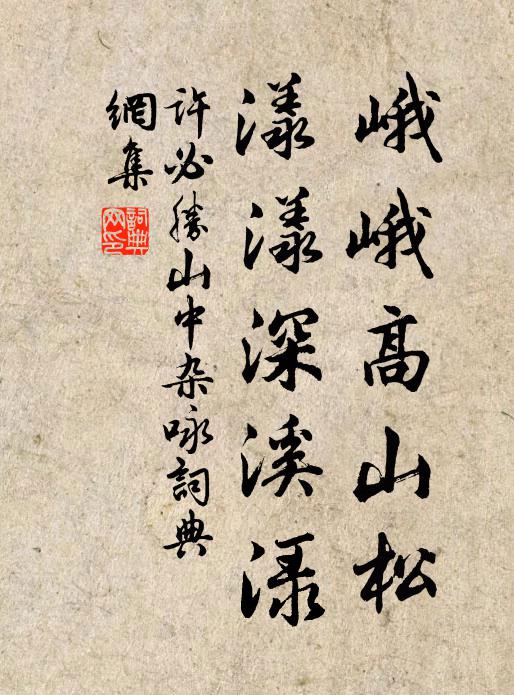 峨峨高山松
漾漾深溪渌
许必胜山中杂咏詞典
網集
詞典
网印